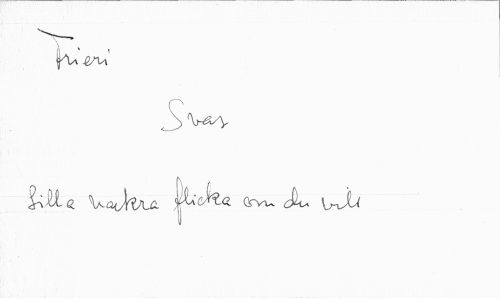 Frieri
Svar
Lilla vackra flicka om du vill